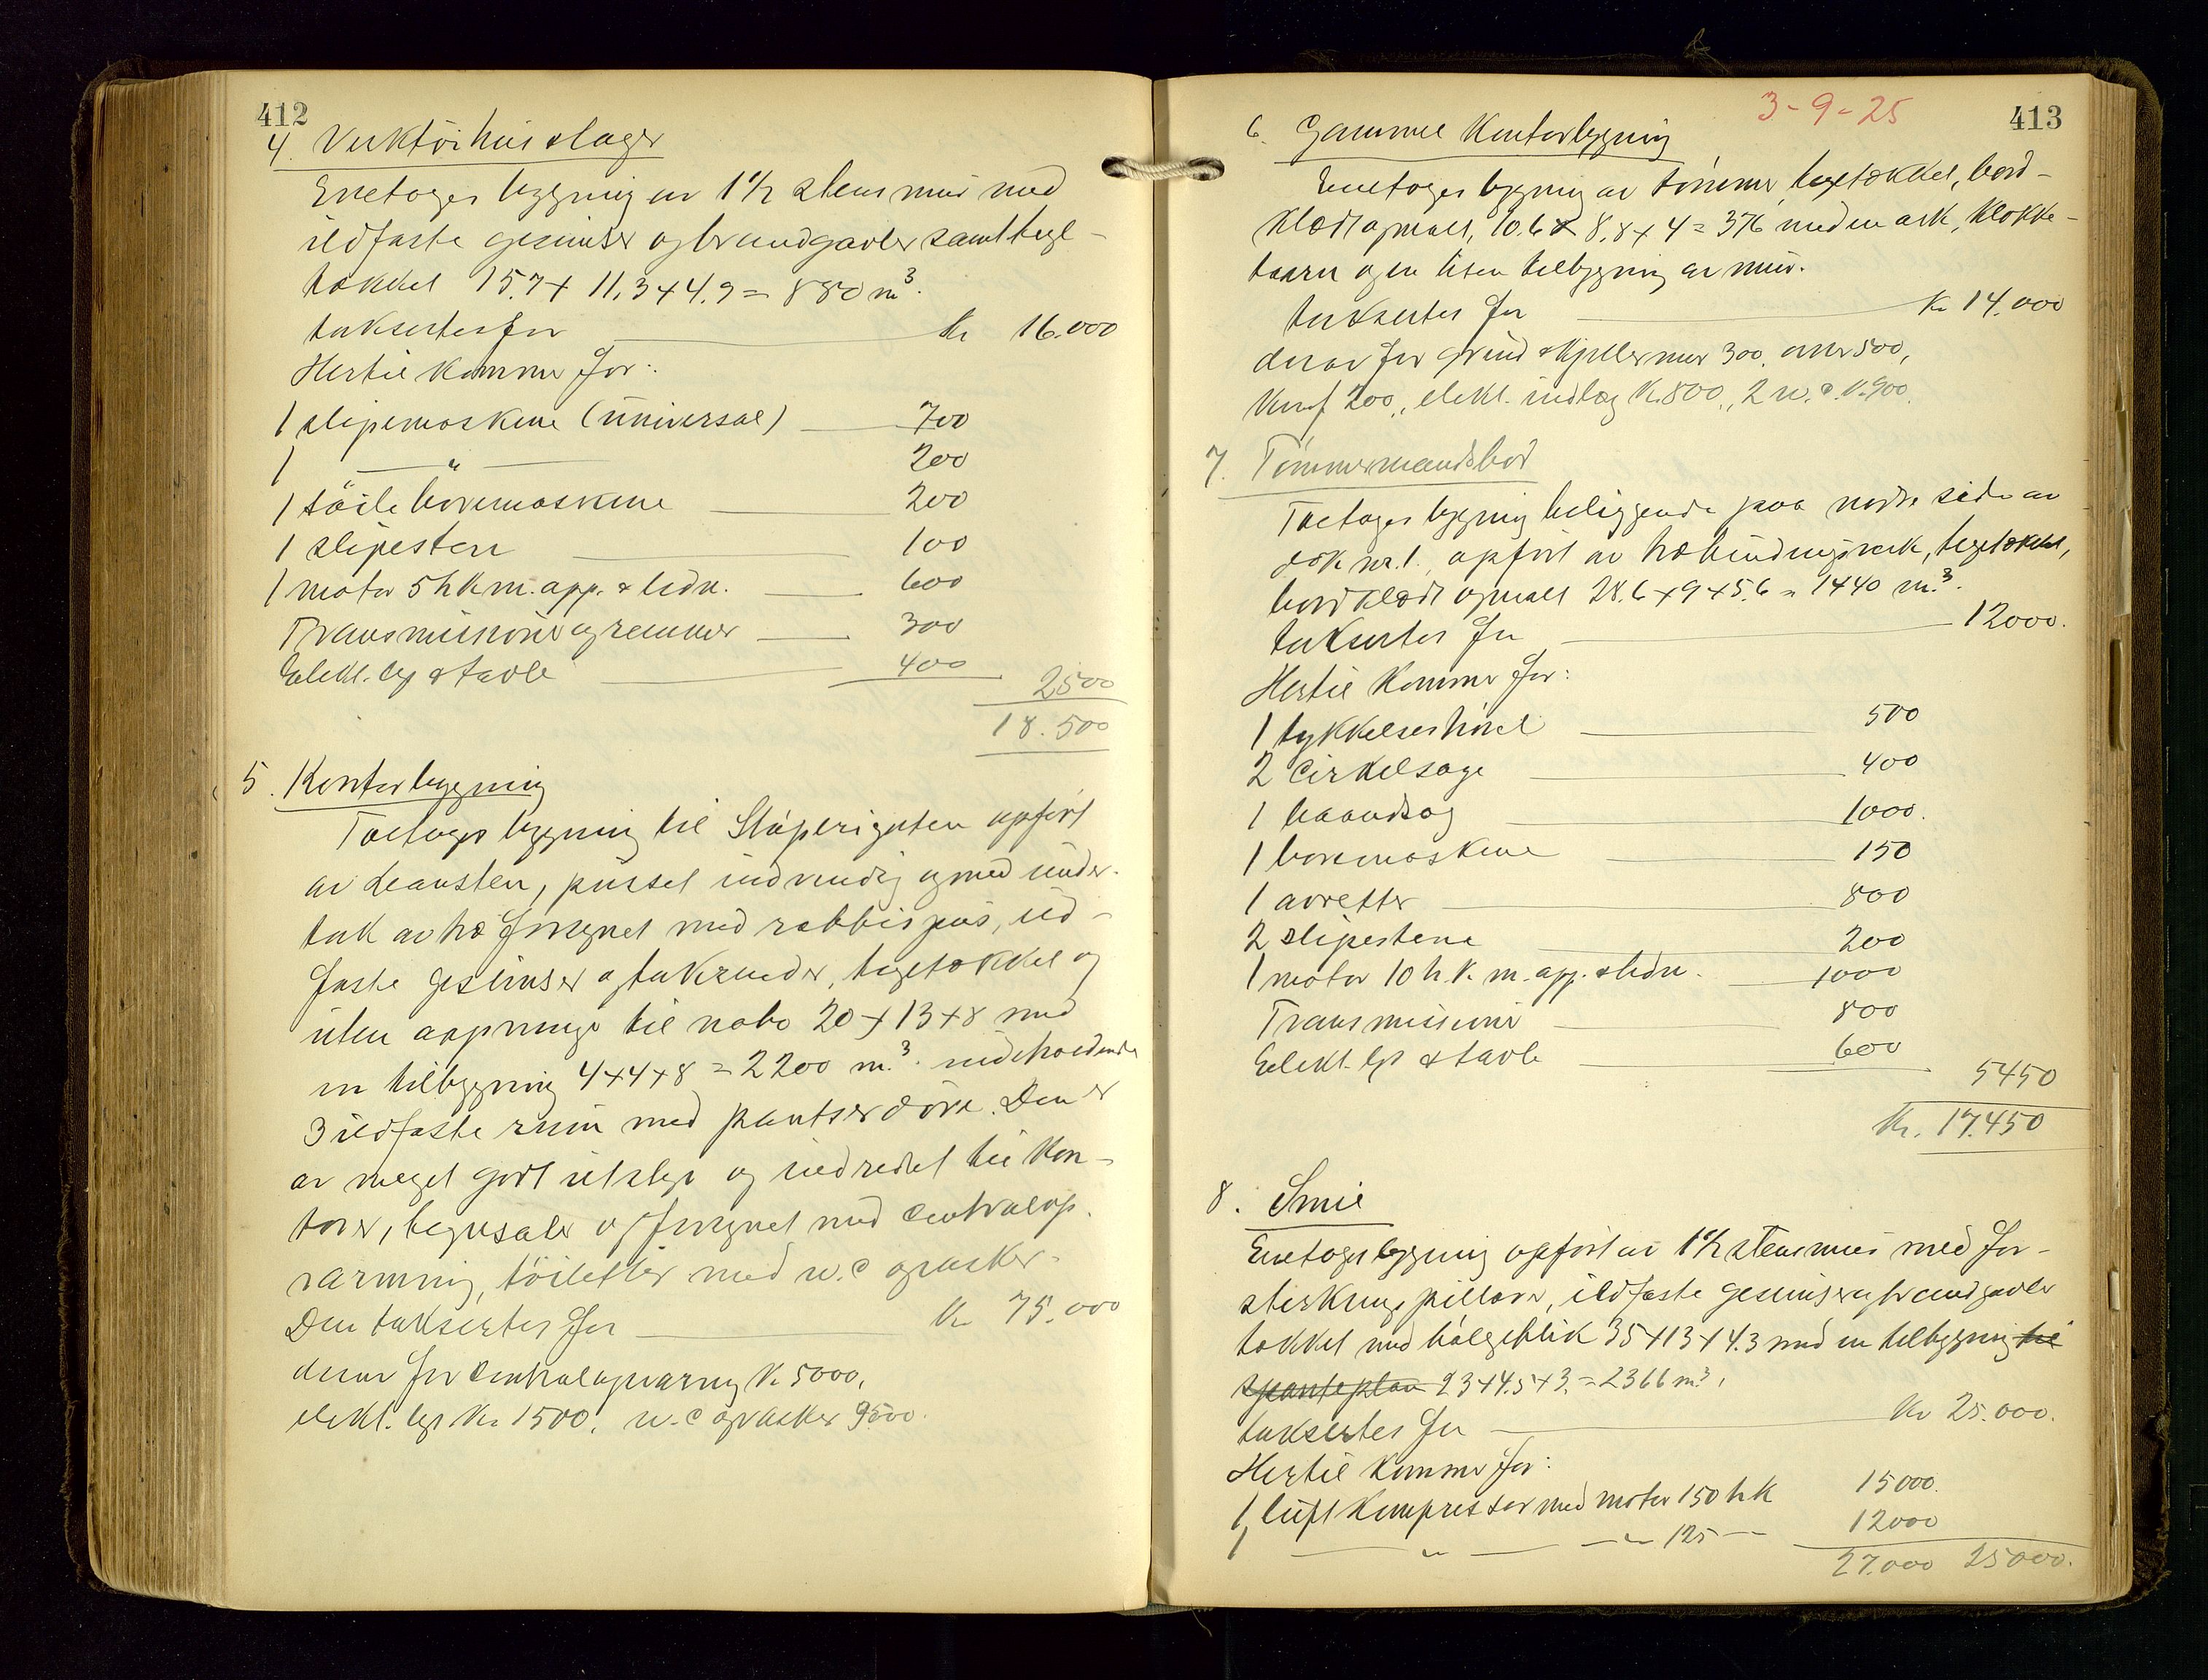 412
4. Verktöihus & lager
Enetages bygning av 1 1/2 stens mur med
ildfaste gesimser og brandgavler samt tegl-
tækket 15.7 + 11.3 + 4.9 = 880 m³.
takseertes for Kr 16.000
Hertil kommer for:
1 slipemaskine (universal) 700
1 — " — 200
1 söile boremaskine 200
1 slipesten 100
1 motor 5 hk m. app. & ledn. 600
Transmissioner og remmer 300
Elekt. lys & tavle 400
2500
18.500
5. Kontorbygning
Toetages bygning til Støperigaten opført
av Leansten, pusset indvendig og med under-
tak av træ forsynet med rabbitspus, ild-
faste gesimser og takrender, tegltækket og
uten aapninge til nabo 20 + 13 + 8 med
en tilbygning 4 + 4 + 8 = 2200 m³. indeholdende
3 ildfaste rum med pantserdöre. Den er
av meget godt utstyr og indredet til kon-
torer, tegnesaler og forsynet med centralop-
varmning, töiletter med w.c og vasker.
Den taksertes for Kr 75.000
derav for centralopvarmg Kr 5000,
elekt. lys Kr 1500, w.c og vasker 9500.
3-9-25
413
6. Gammel Kontorbygning
Enetages bygning av tømmer, tegltækket, bord-
klædt og malt, 10.6 x 8.8 + 4 = 376 med en ark, klokke-
taarn og en liten tilbygning av mur.
taksertes for Kr 14.000
derav for grund & kjellermur 300, ovner 500,
Komf 200, elekt. indlæg Kr. 800, 2 w.c. Kr. 900.
7. Tømmermandsbod
Toetages bygning beliggende paa nordre side av
dok nr. 1., opført av træbindingsverk, tegltækket,
bordklædt og malt 28.6 + 9 + 5.6 = 1440 m³.
taksertes for 12000.
Hertil kommer for:
1 tykkelseshøvel 500
2 cirkelsage 400
1 baandsag 1000.
1 boremaskine 150
1 avretter 800
2 slipestene 200
1 motor 10 h.k. m. app. & ledn. 1000
Transmissioner 800
Elekt. lys & tavle 600
5450
Kr. 17.450
8. Smie
Enetages bygning opført av 1 1/2 stens mur med for-
sterknings pillarer, ildfaste gesimser og brandgavler
tækket med bølgeblik 35 + 13 + 4.3 med en tilbygning til
spanteplan 23 + 4.5 + 3. = 2366 m³,
taksertes for Kr 25.000.
Hertil kommer for:
1 luftkompressor med motor 150 hk 15000.
1 — " — — " — 125 — 12000
27.000 25000.